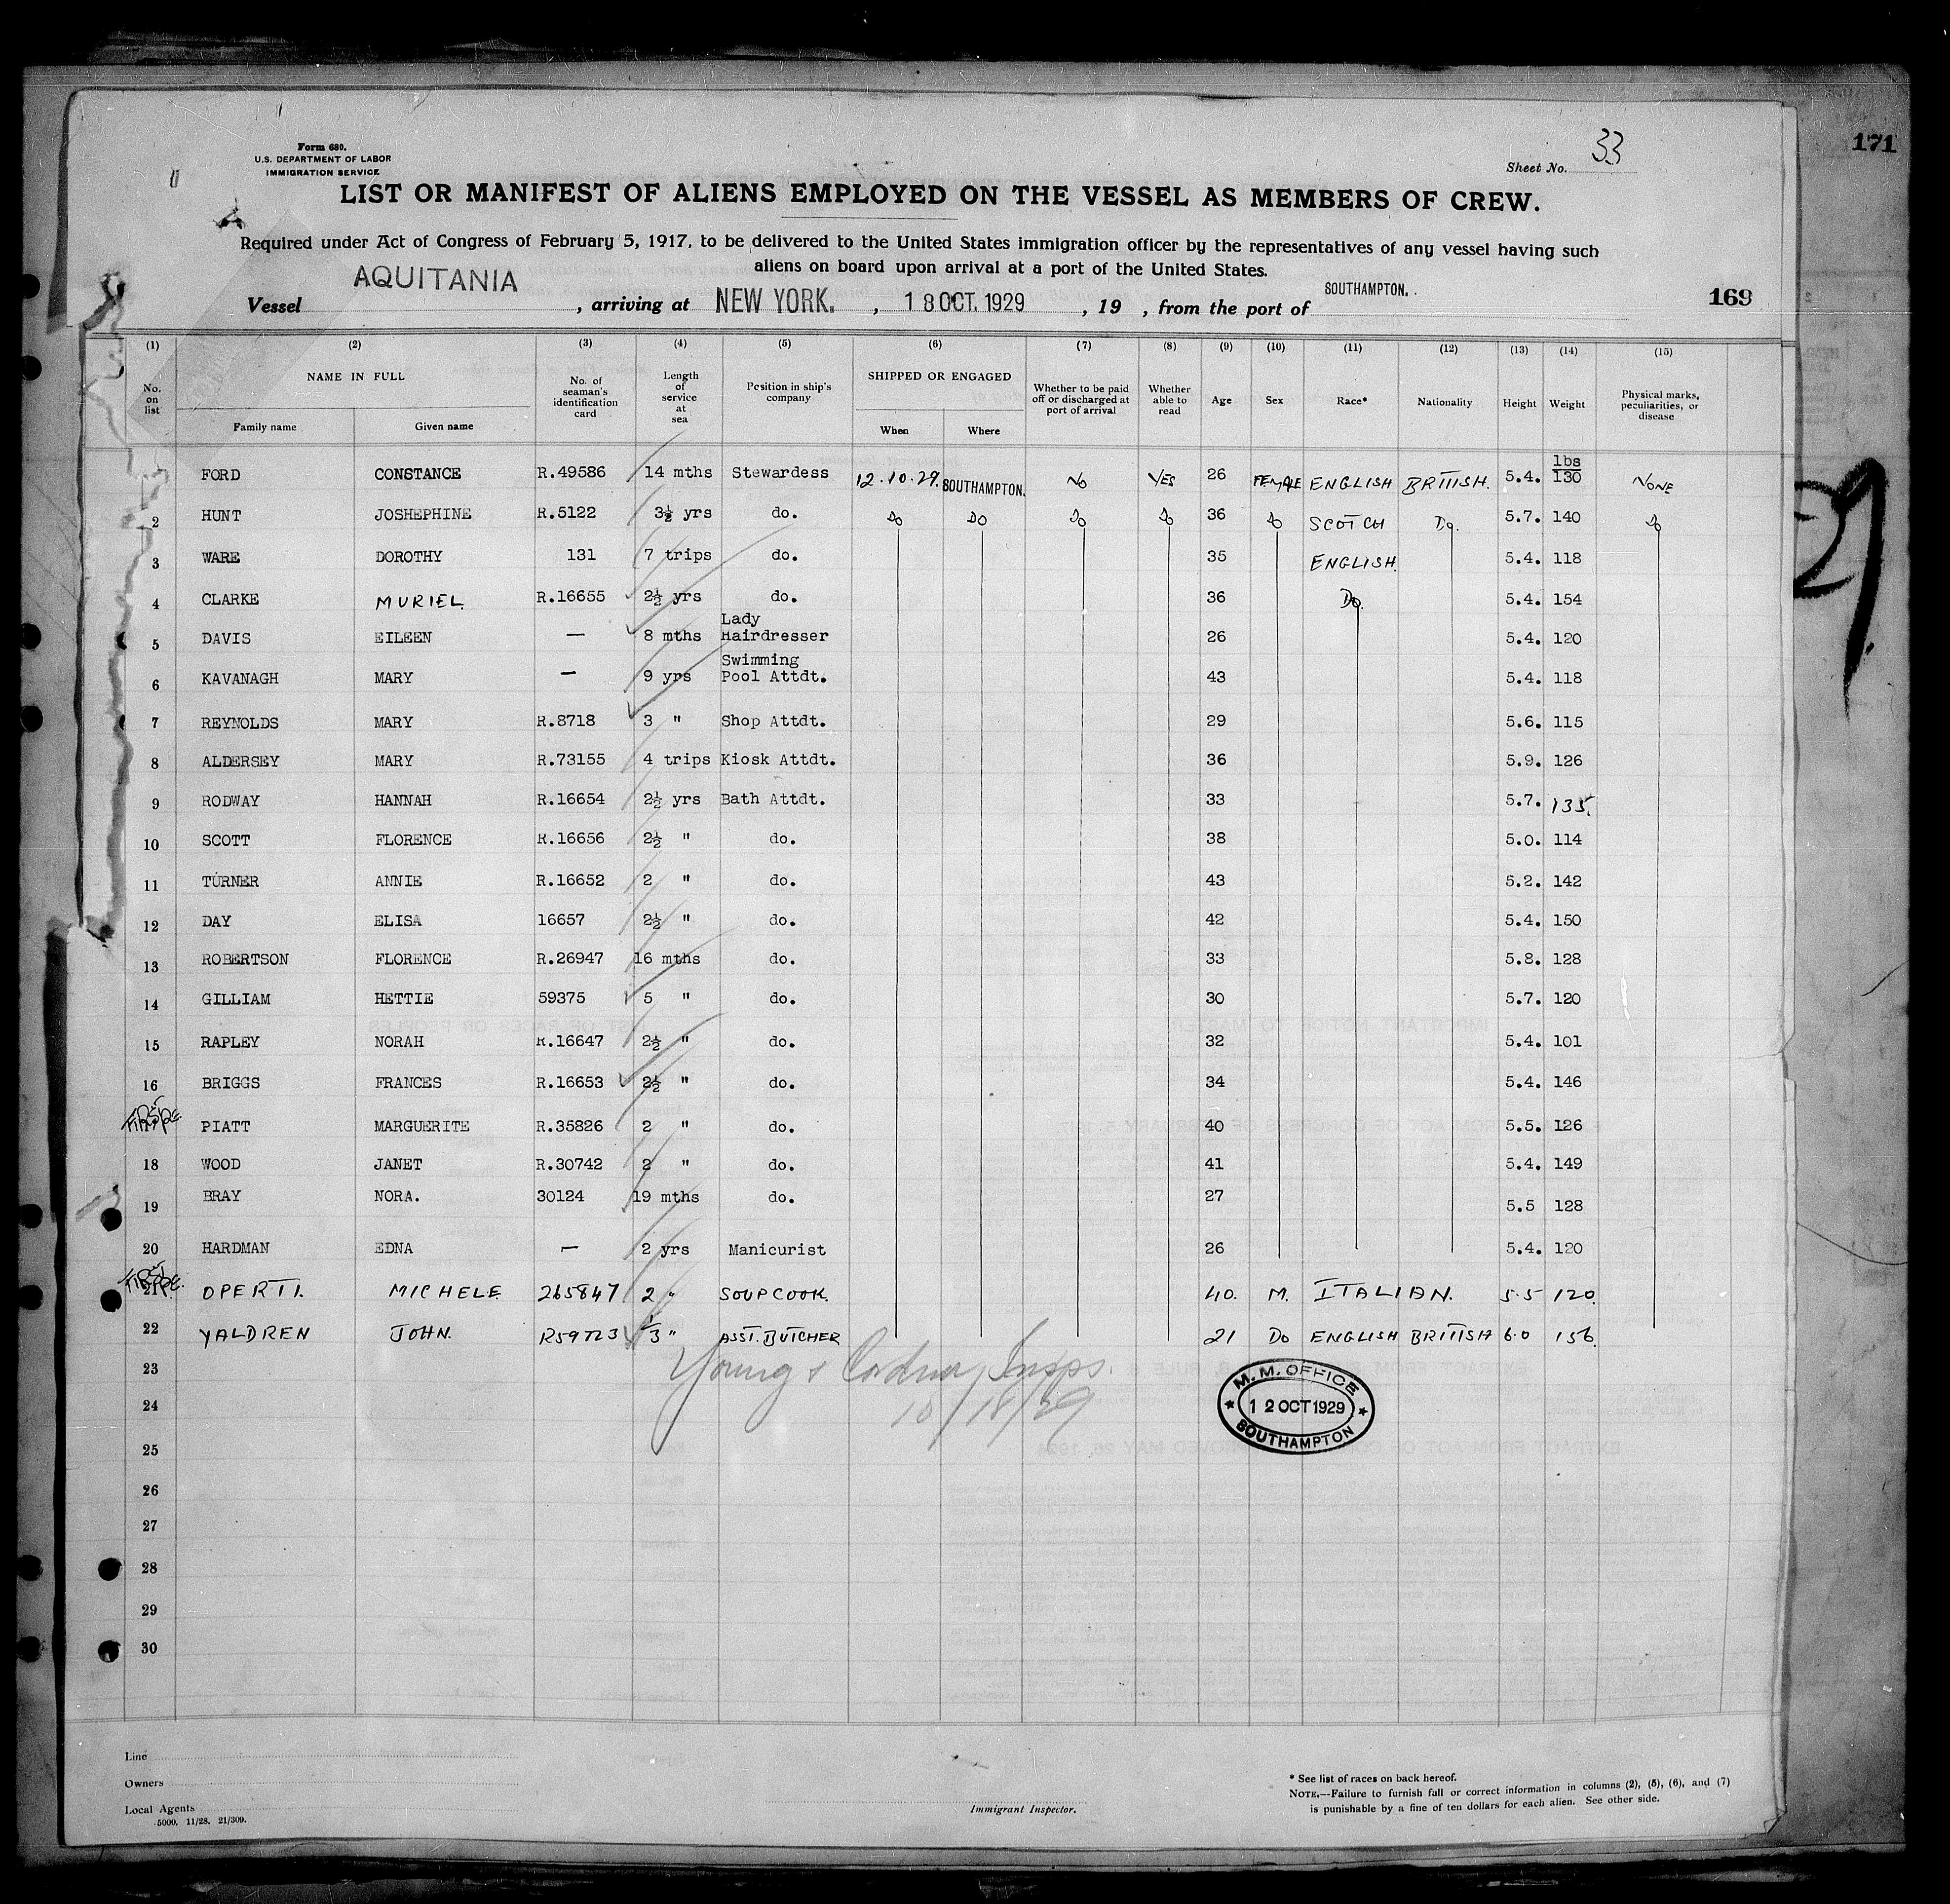 171
Form 680.
U.S. DEPARTMENT OF LABOR
IMMIGRATION SERVICE
Sheet No. 33
LIST OR MANIFEST OF ALIENS EMPLOYED ON THE VESSEL AS MEMBERS OF CREW.
Required under Act of Congress of February 5, 1917, to be delivered to the United States immigration officer by the representatives of any vessel having such
aliens on board upon arrival at a port of the United States.
Vessel AQUITANIA , arriving at NEW YORK. , 18 OCT. 1929 , 19 , from the port of SOUTHAMPTON. 169
(1) (2) (3) (4) (5) (6) (7) (8) (9) (10) (11) (12) (13) (14) (15)
No. on list NAME IN FULL Family name Given name No. of seaman's identification card Length of service at sea Position in ship's company SHIPPED OR ENGAGED When Where Whether to be paid off or discharged at port of arrival Whether able to read Age Sex Race* Nationality Height Weight Physical marks, peculiarities, or disease
FORD CONSTANCE R.49586 14 mths Stewardess 12.10.29. SOUTHAMPTON. No YES 26 FEMALE ENGLISH BRITISH. 5.4. lbs 130 NONE
2 HUNT JOSHEPHINE R.5122 3½ yrs do. Do Do Do Do 36 Do SCOTCH Do. 5.7. 140 Do
3 WARE DOROTHY 131 7 trips do. 35 ENGLISH. 5.4. 118
4 CLARKE MURIEL R.16655 2½ yrs do. 36 Do. 5.4. 154
5 DAVIS EILEEN — 8 mths Lady Hairdresser 26 5.4. 120
6 KAVANAGH MARY — 9 yrs Swimming Pool Attdt. 43 5.4. 118
7 REYNOLDS MARY R.8718 3 " Shop Attdt. 29 5.6. 115
8 ALDERSEY MARY R.73155 4 trips Kiosk Attdt. 36 5.9. 126
9 RODWAY HANNAH R.16654 2½ yrs Bath Attdt. 33 5.7. 135.
10 SCOTT FLORENCE R.16656 2½ " do. 38 5.0. 114
11 TURNER ANNIE R.16652 2 " do. 43 5.2. 142
12 DAY ELISA 16657 2½ " do. 42 5.4. 150
13 ROBERTSON FLORENCE R.26947 16 mths do. 33 5.8. 128
14 GILLIAM HETTIE 59375 5 " do. 30 5.7. 120
15 RAPLEY NORAH R.16647 2½ " do. 32 5.4. 101
16 BRIGGS FRANCES R.16653 2½ " do. 34 5.4. 146
PIATT MARGUERITE R.35826 2 " do. 40 5.5. 126
18 WOOD JANET R.30742 2 " do. 41 5.4. 149
19 BRAY NORA. 30124 19 mths do. 27 5.5 128
20 HARDMAN EDNA — 2 yrs Manicurist 26 5.4. 120
21 OPERTI. MICHELE 265847 2 " SOUPCOOK. 40. M. ITALIAN. 5.5 120.
22 YALDREN JOHN. R59723 1/3 " ASST. BUTCHER 21 Do ENGLISH BRITISH 6.0 156.
23
24
25
26
27
28
29
30
Insps.
10/18/29
M. M. OFFICE
12 OCT 1929
SOUTHAMPTON
Line
Owners
Local Agents
5000. 11/28. 21/309.
Immigrant Inspector.
* See list of races on back hereof.
NOTE.—Failure to furnish full or correct information in columns (2), (5), (6), and (7)
is punishable by a fine of ten dollars for each alien. See other side.